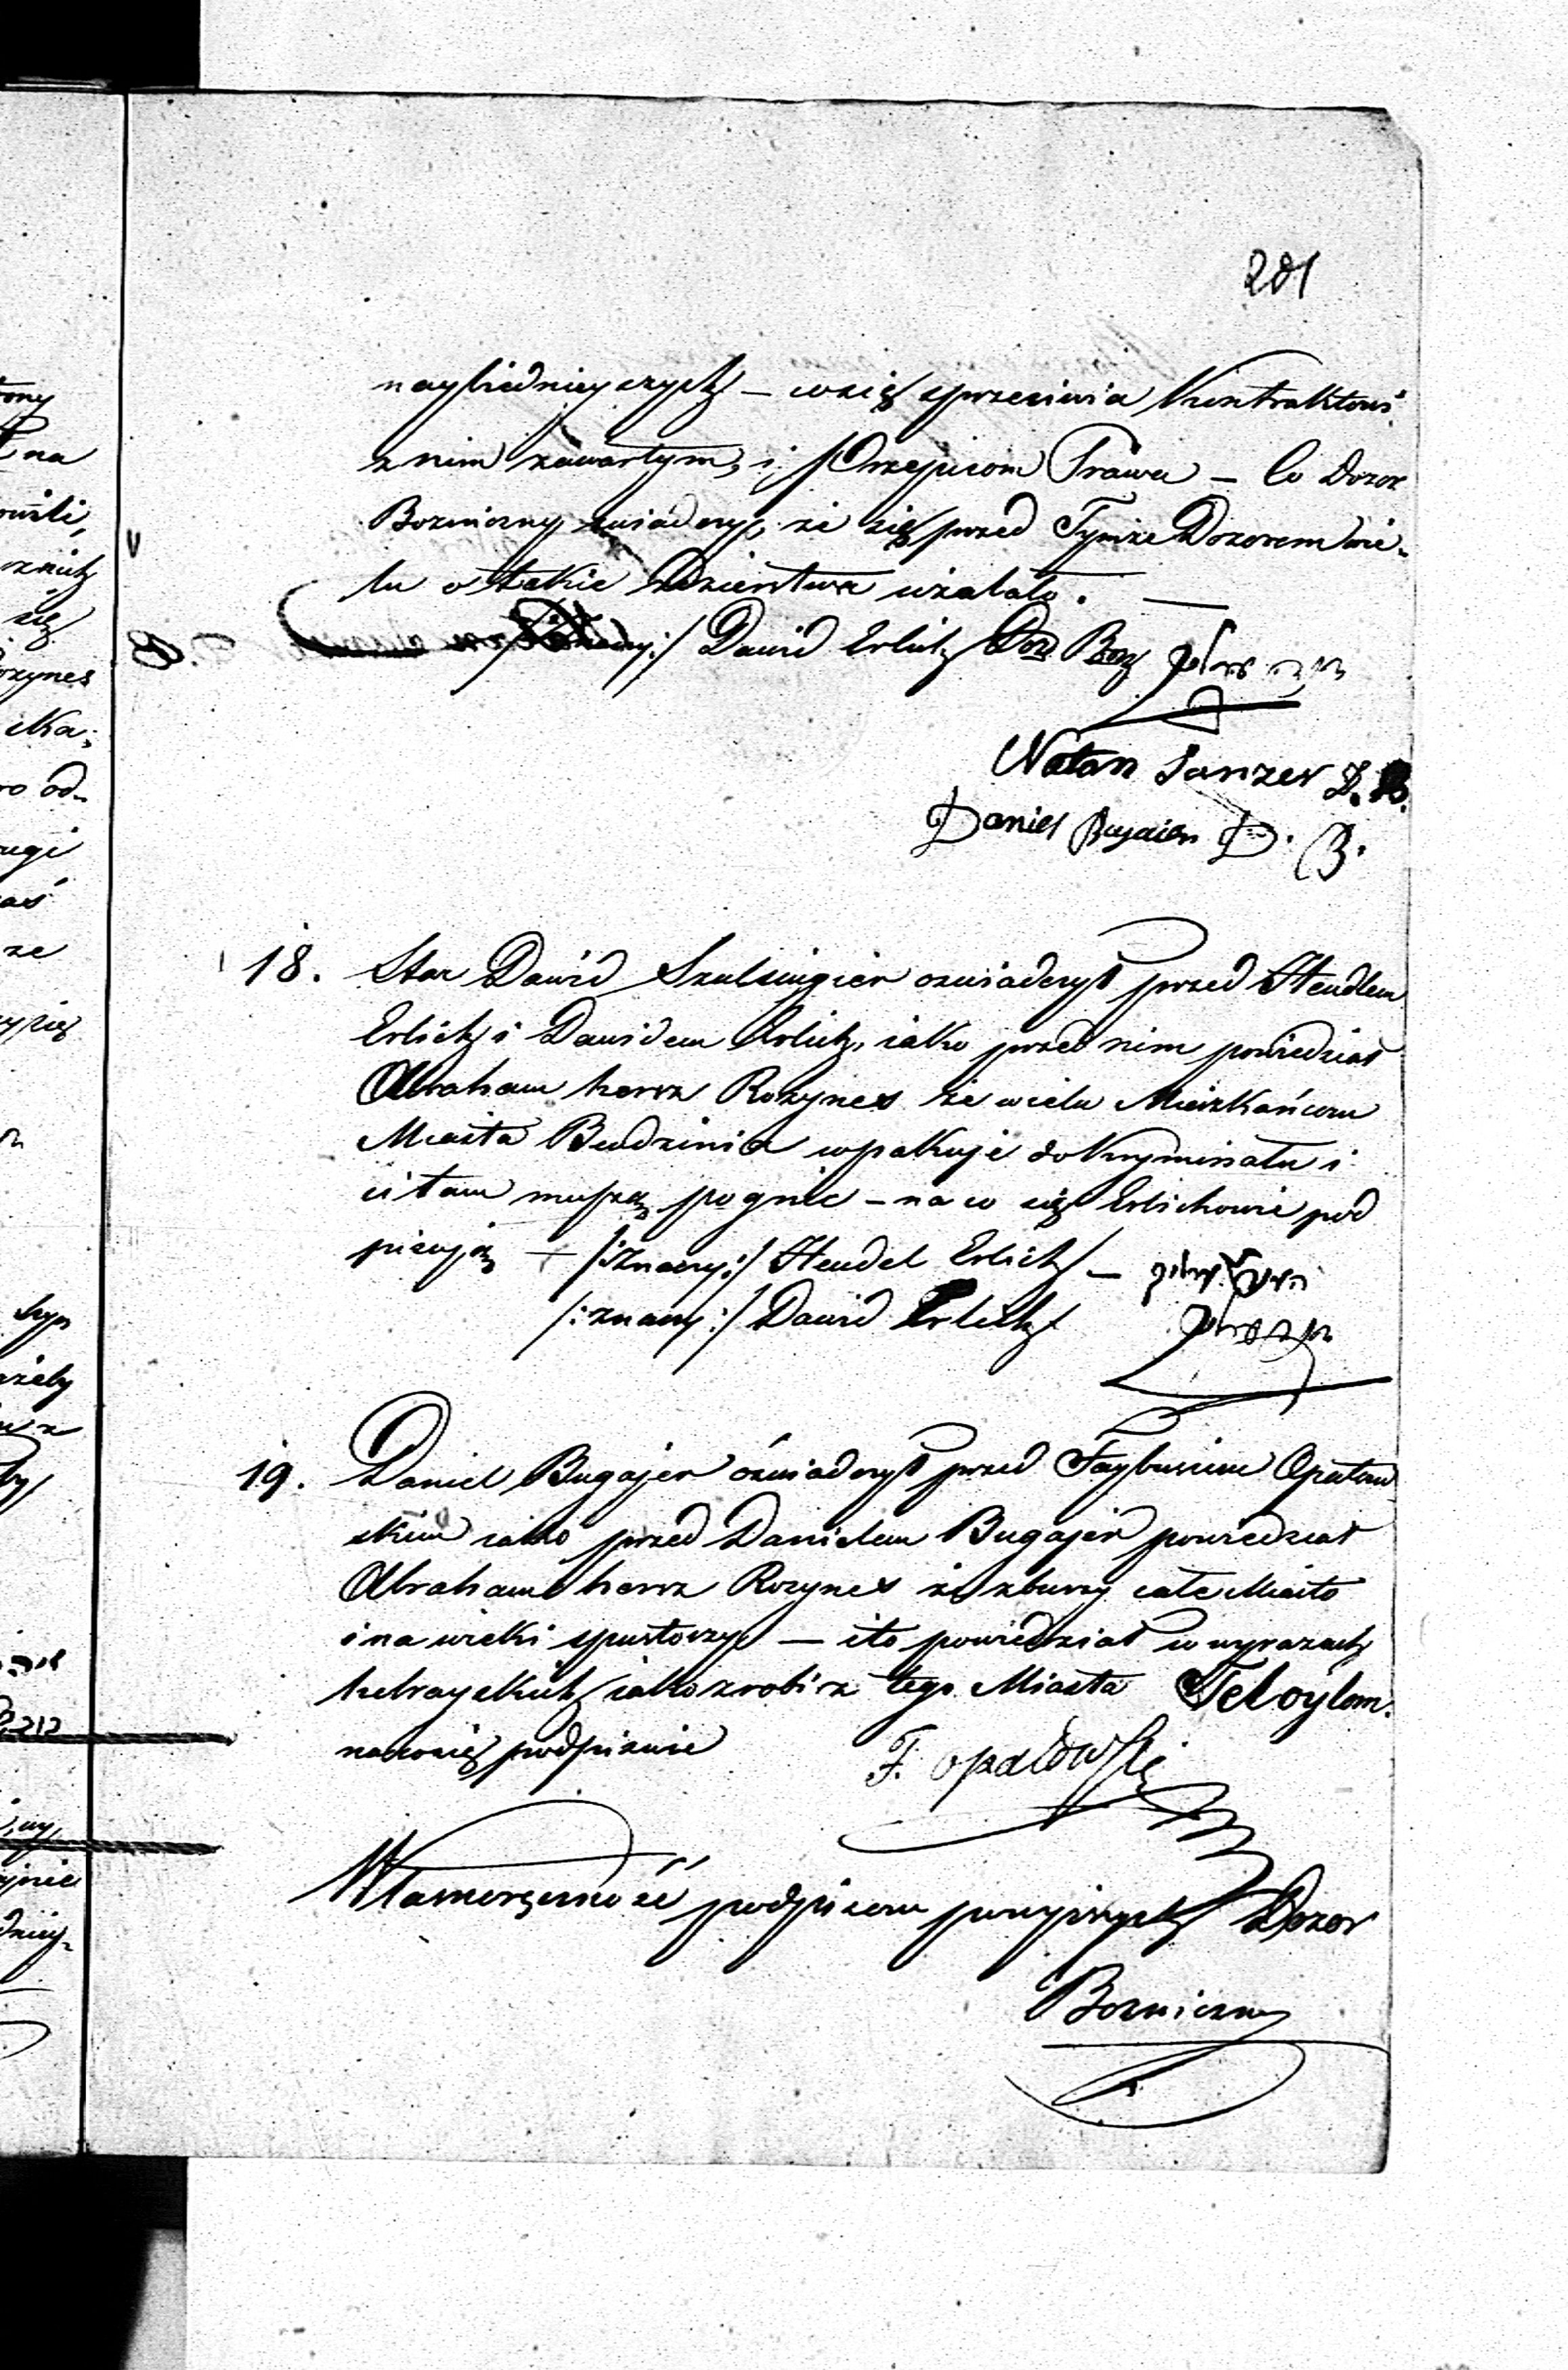 201
naybiednieyszych – co się sprzeciwia Kontraktowi
z nim zawartym, i Przepisom Prawa – Co Dozor
Bozniczny swiadczy, że się przed Tymże Dozorem wie-
lu o takie Zdzierstwa użalało. —
/:znaczy:/ Dawid Erlich Doz Boz
Natan Sanzer D. B.
Daniel Bugaier D. B.
18. Star Dawid Szulsingier oswiadczył przed Hendlem
Erlich i Dawidem Erlich, iako przed nim powiedział
Abraham herz Rozynes że wielu Mieszkańców
Miasta Bendzinia wpakuje do Kryminału i
ci tam muszą pognić – na co się Erlichowie pod
pisują – /:znaczy:/ Hendel Erlich –
/:znaczy:/ Dawid Erlich
19. Daniel Bugajer oświadczył przed Faybusiem Opatow
skim iako przed Danielem Bugajer powiedział
Abraham herz Rozynes że zburzy całe Miasto
i na wieki spustoszy – i to powiedział w wyrazach
hebrayskich iako zrobi z tego Miasta Tel oylom.
na co się podpisuie F. opatowski
Własnoręczność podpisów powyższych Dozor
Bozniczny